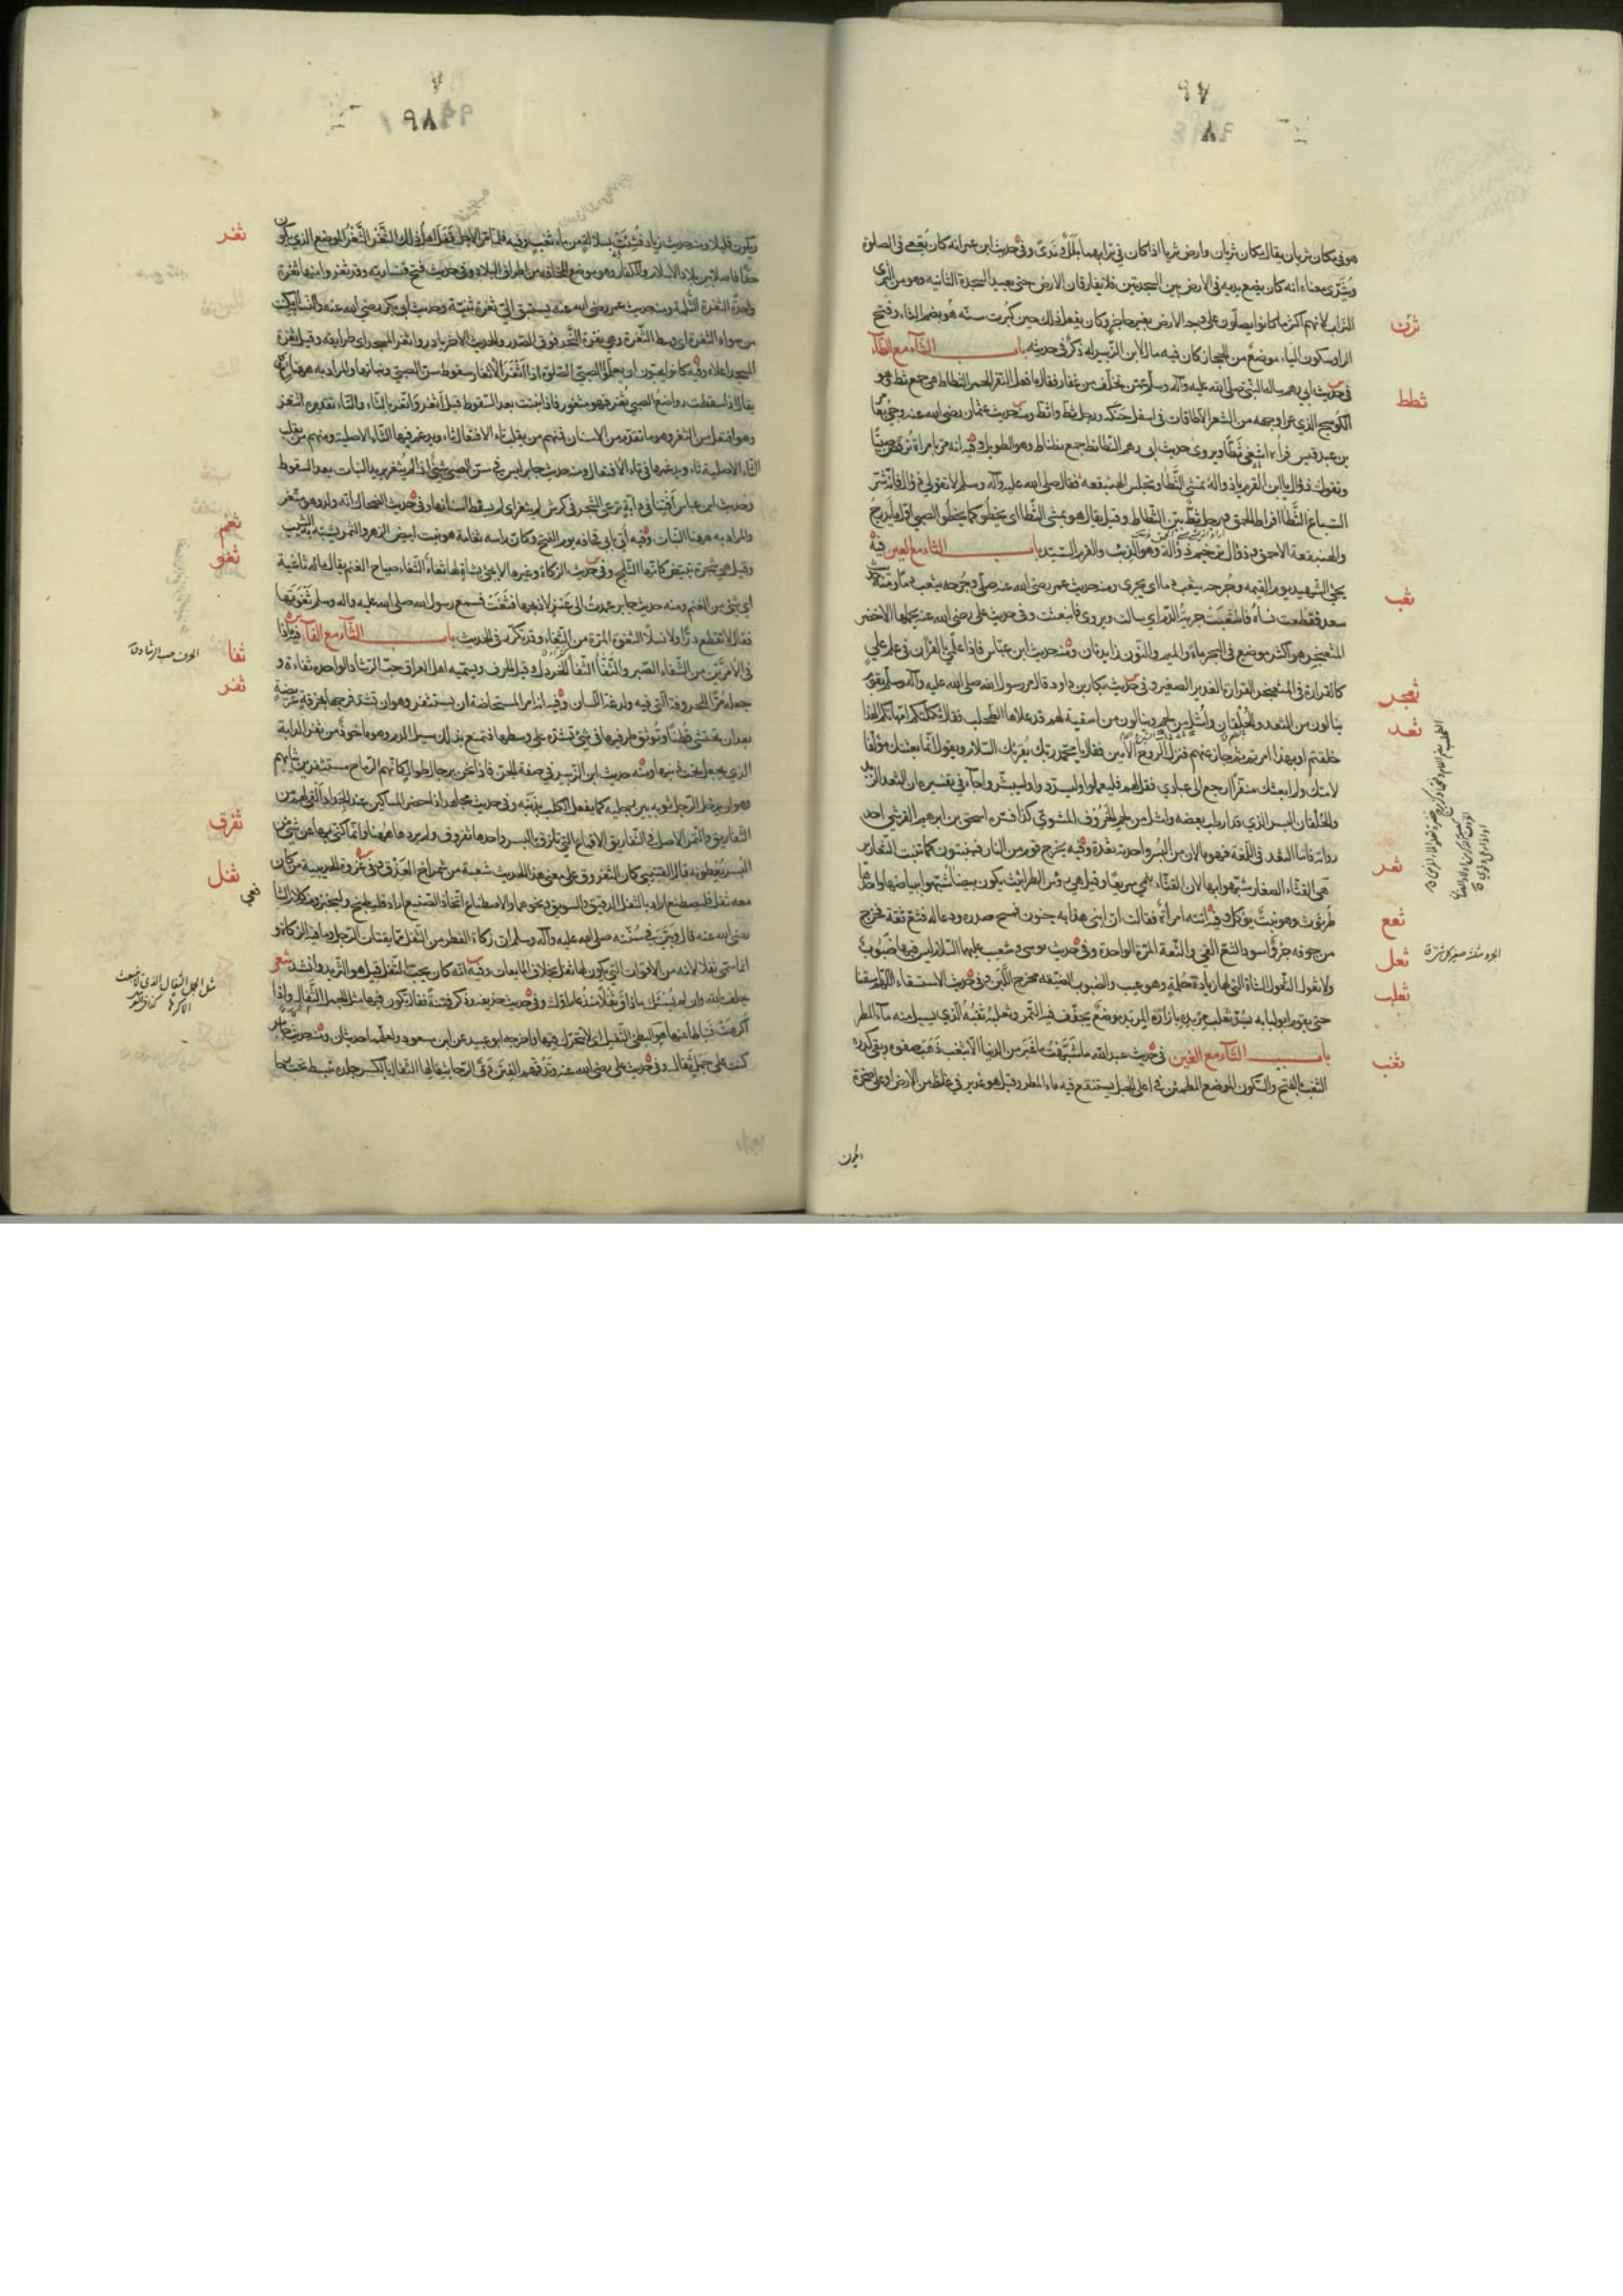 هو في مكان ثريان يقال مكان ثريان وارض ثريا اذا كان في ترابهما بلل وندى وفي حديث ابن عمر انه كان يقعي في الصلوة
ويثري معناه انه كان يضع يديه في الارض بين السجدتين فلا يفارقان الارض حتى يعيد السجدة الثانية وهو من الثرى
التراب لانهم اكثر ما كانوا يصلون على وجه الارض بغير حاجز وكان يفعل ذلك حين كبرت سنه هو بضم الثاء وفتح
ثرن
الراء وسكون الياء موضع من الحجاز كان فيه مال لابن الزبير له ذكر في حديثه باب الثاء مع الطاء
ثطط
في حديث ابي رهم ساله النبي صلى الله عليه وآله وسلم عمن تخلف من غفار فقال ما فعل النفر الحمر الثطاط هي جمع ثط وهو
الكوسج الذي عرا وجهه من الشعر الا طاقات في اسفل حنكه ورجل ثط واثط ومنه حديث عثمان رضي الله عنه وجيء بعامر
بن عبد قيس فرآه اشغى ثطا ويروى حديث ابي رهم النطانط جمع نطناط وهو الطويل وفيه انه مر بامراة ترقص صبيا
وتقول ذؤال يا ابن القرم يا ذواله يمشي الثطا ويجلس الهبنقعه فقال صلى الله عليه وآله وسلم لا تقولي ذوال فانه شر
السباع الثطا افراط الحمق ورجل ثط بين الثطاط وقيل يقال هو يمشي الثطا اي يخطو كما يخطو الصبي اول ما يدرج
والهبنقعة الاحمق وذؤال ترخيم ذؤالة وهو الذئب والقرم السيد باب الثاء مع العين فيه
ثعب
يجيء الشهيد يوم القيمة وجرحه يثعب دما اي يجري ومنه حديث عمر رضي الله عنه صلى وجرحه يثعب دما ومنه حديث
سعد فقطعت نساه فانثعبت جدية الدم اي سالت ويروى فانبعثت وفي حديث علي رضي الله عنه يحملها الاخضر
المثعنجر هو اكثر موضع في البحر ماء والميم والنون زايدتان ومنه حديث ابن عباس فاذا علمي بالقرآن في علم علي
ثعجر
كالقرارة في المثعنجر القرارة الغدير الصغير وفي حديث بكار بن داود قال مر رسول الله صلى الله عليه وآله وسلم بقوم
ثعد
ينالون من الثعد والحلقان واشل من لحم وينالون من اسقية لهم قد علاها الطحلب فقال ثكلتكم امهاتكم الهذا
خلقتم او بهذا امرتم ثم جاز عنهم فنزل الروح الامين فقال يا محمد ربك يقرئك السلام ويقول انما بعثتك مؤلفا
لامتك ولم ابعثك منفرا ارجع الى عبادي فقل لهم فليعملوا وليسددوا وليبشروا جاء في تفسيره ان الثعد الزبد
والحلقان البسر الذي قد ارطب بعضه واشل من لحم الخروف المشوي كذا فسره اسحق بن ابرهيم القرشي احد
رواته فاما الثعد في اللغة فهو ما لان من البسر واحدته ثعدة وفيه يخرج قوم من النار فينبتون كما تنبت الثعارير
ثعر
هي القثاء الصغار شبهوا بها لان القثاء ينمي سريعا وقيل هي رؤس الطراثيث يكون بيضا شبهوا ببياضها واحدها
طرثوث وهو نبت يؤكل وفيه اتته امرأة فقالت ان ابني هذا به جنون فمسح صدره ودعا له فثع ثعة فخرج
ثعع
من جوفه جرو اسود الثع القيء والثعة المرة الواحدة وفي حديث موسى وشعيب عليهما السلام ليس فيها ضبوب
ثعل
ولا ثعول الثعول الشاة التي لها زيادة حلمة وهو عيب والضبوب الضيقة مخرج اللبن وفي حديث الاستسقاء اللهم اسقنا
ثعلب
حتى يقوم ابو لبابه يسد ثعلب مربده بازاره المربد موضع يجفف فيه التمر وثعلبه ثقبه الذي يسيل منه ماء المطر
باب الثاء مع الغين في حديث عبد الله ما شبهت ما غبر من الدنيا الا بثغب ذهب صفوه وبقي كدره
ثغب
الثغب بالفتح والسكون الموضع المطمئن في اعلى الجبل يستنقع فيه ماء المطر وقيل هو غدير في غلظ من الارض او على صخرة
ويكون
ويكون قليلا ومنه حديث زياد فثئت بسلالة من ماء ثغب وفيه فلما مر الاجل قفل اهل ذلك الثغر الثغر الموضع الذي يكون
ثغر
حدا فاصلا بين بلاد الاسلام والكفار وهو موضع المخافة من اطراف البلاد وفي حديث فتح قيسارية وقد ثغروا منها ثغرة
واحدة الثغرة الثلمة ومنه حديث عمر رضي الله عنه يستبق الى ثغرة ثنية وحديث ابي بكر رضي الله عنه والنسابة امكنت
من سواء الثغرة اي وسط الثغرة وهي نقرة النحر فوق الصدر والحديث الاخر بادروا ثغر المسجد اي طرايقه وقيل ثغرة
المسجد اعلاه وفيه كانوا يحبون ان يعلموا الصبي الصلوة اذا اثغر الاثغار سقوط سن الصبي ونباتها والمراد به ههنا
يقال اذا سقطت رواضع الصبي ثغر فهو مثغور فاذا نبتت بعد السقوط قيل اثغر واتغر بالثاء والتاء تقديره اثتغر
وهو افتعل من الثغر وهو ما تقدم من الاسنان فمنهم من يقلب تاء الافتعال ثاء ويدغم فيها الثاء الاصلية ومنهم من يقلب
الثاء الاصلية تاء ويدغمها في تاء الافتعال ومنه حديث جابر ليس في سن الصبي شيء اذا لم يثغر يريد النبات بعد السقوط
وحديث ابن عباس افتنا في دابة ترعى الشجر في كرش لم يثغر اي لم يسقط اسنانها وفي حديث الضحاك انه ولد وهو مثغر
والمراد به ههنا النبات وفيه أتي بابي قحافة يوم الفتح وكان راسه ثغامة هو نبت ابيض الزهر والثمر يشبه به الشيب
ثغم
وقيل هي شجرة تبيض كانها الثلج وفي حديث الزكاة وغيرها لا تجيء بشاة لها ثغاء الثغاء صياح الغنم يقال ماله ثاغية
ثغو
اي شيء من الغنم ومنه حديث جابر عمدت الى عنز لاذبحها فثغت فسمع رسول الله صلى الله عليه وآله وسلم ثغوتها
فقال لا تقطع درا ولا نسلا الثغوة المرة من الثغاء وقد تكرر في الحديث باب الثاء مع الفاء فيه ماذا
ثفا
الحرف حب الرشاد ق
في الامرين من الشفاء الصبر والثفاء الثفاء الخردل وقيل الحرف ويسميه اهل العراق حب الرشاد الواحدة ثفاءة و
جعله مرا للحروفة التي فيه ولذعه اللسان وفيه انه امر المستحاضة ان تستثفر وهو ان تشد فرجها بخرقة عريضة
ثفر
بعد ان تحتشي قطنا وتوثق طرفيها في شيء تشده على وسطها فتمنع بذلك سيل الدم وهو ماخوذ من ثفر الدابة
الذي يجعل تحت ذنبها ومنه حديث ابن الزبير في صفة الجن فاذا نحن برجال طوال كانهم الرماح مستثفرين ثيابهم
وهو ان يدخل الرجل ثوبه بين رجليه كما يفعل الكلب بذنبه وفي حديث مجاهد اذا حضر المساكين عند الجداد القي لهم من
الثفاريق والتمر الاصل في الثفاريق الاقماع التي تلزق بالبسر واحدها ثفروق ولم يردها ههنا وانما كنى بها عن شيء من
ثفرق
البسر يعطونه قال القتيبي كان الثفروق على معنى هذا الحديث شعبة من شمراخ العذق وفي غزوة الحديبية من كان
ثفل
معه ثفل فليصطنع اراد بالثفل الدقيق والسويق ونحوهما والاصطناع اتخاذ الصنيع اراد فليطبخ وليختبز ومنه كلام الشافعي
رضي الله عنه قال وبين في سنته صلى الله عليه وآله وسلم ان زكاة الفطر من الثفل مما يقتات الرجل وما فيه الزكاة و
انما سمي ثفلا لانه من الاقوات التي يكون لها ثفل بخلاف المايعات وفيه انه كان يحب الثفل قيل هو الثريد وانشد شعر
يحلف بالله وان لم يسئل ما ذاق ثفلا منذ عام اول وفي حديث حذيفة وذكر فتنة فقال تكون فيها مثل الجمل الثفال واذا
مثل الجمل الثفال الذي لا ينبعث
الا كرها
اكرهت فتباطأ عنها هو البطيء الثقيل اي لا تتحرك فيها واخرجه ابو عبيد عن ابن مسعود ولعلهما حديثان ومنه حديث جابر
كنت على جمل ثفال وفي حديث علي رضي الله عنه وتدقهم الفتن دق الرحا بثفالها الثفال بالكسر جلده تبسط تحت رحا